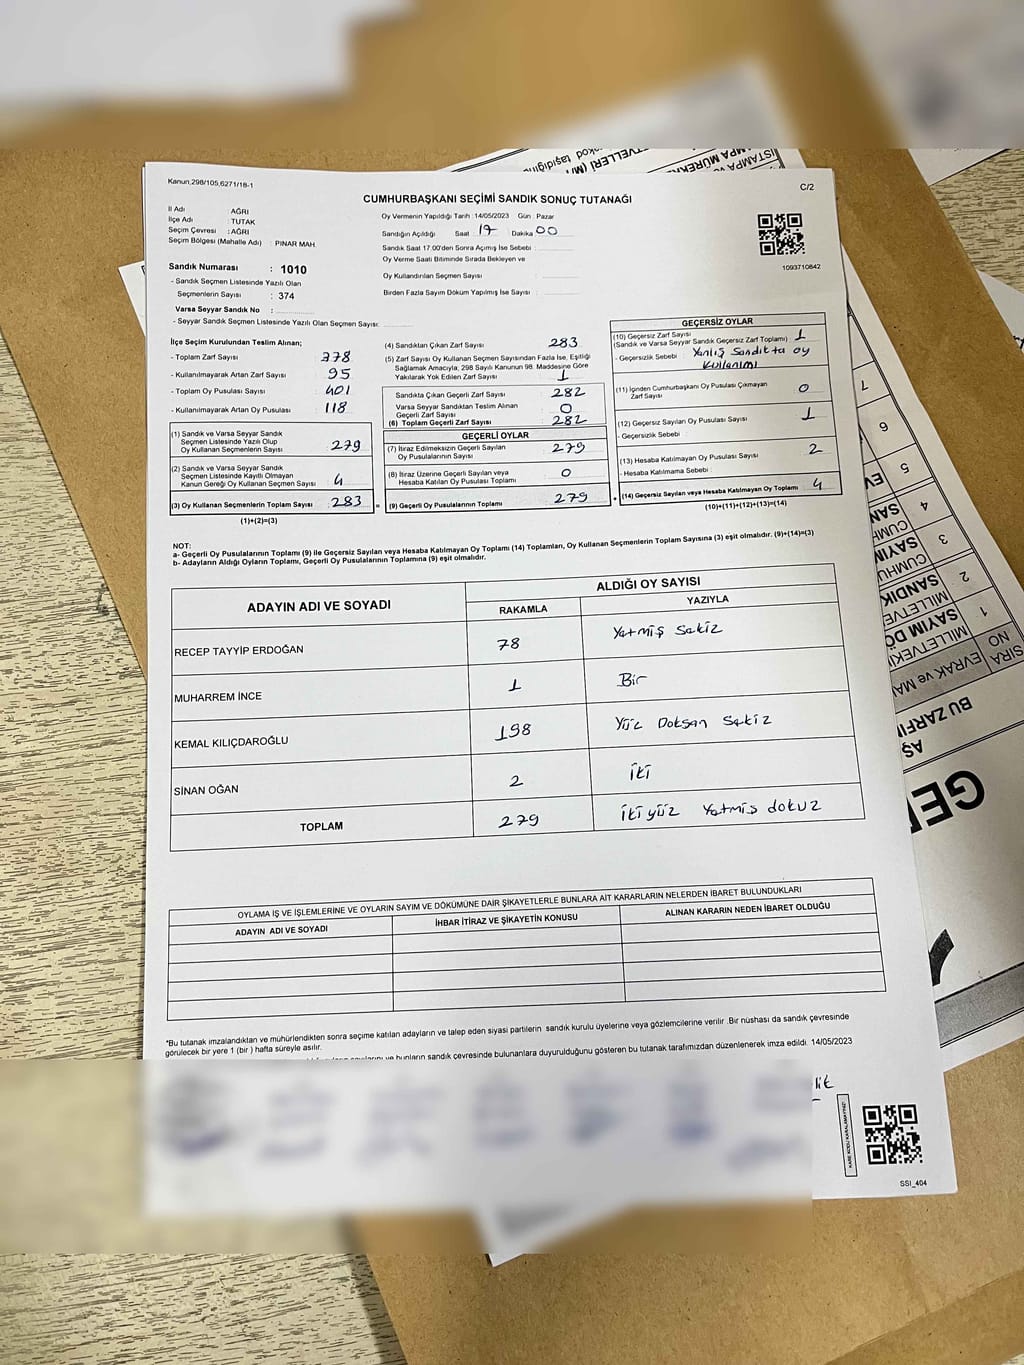 Kanun,298/105,6271/18-1
C/2
CUMHURBAŞKANI SEÇİMİ SANDIK SONUÇ TUTANAĞI
İl Adı : AĞRI
İlçe Adı : TUTAK
Seçim Çevresi : AĞRI
Seçim Bölgesi (Mahalle Adı) : PINAR MAH.
Oy Vermenin Yapıldığı Tarih :14/05/2023 Gün : Pazar
Sandığın Açıldığı Saat 17 Dakika 00
Sandık Saat 17:00'den Sonra Açımış İse Sebebi :
Oy Verme Saati Bitiminde Sırada Bekleyen ve
Oy Kullandırılan Seçmen Sayısı :
Birden Fazla Sayım Döküm Yapılmış İse Sayısı :
1093710842
Sandık Numarası : 1010
- Sandık Seçmen Listesinde Yazılı Olan
Seçmenlerin Sayısı : 374
Varsa Seyyar Sandık No :
- Seyyar Sandık Seçmen Listesinde Yazılı Olan Seçmen Sayısı:
İlçe Seçim Kurulundan Teslim Alınan;
- Toplam Zarf Sayısı 378
- Kullanılmayarak Artan Zarf Sayısı 95
- Toplam Oy Pusulası Sayısı 401
- Kullanılmayarak Artan Oy Pusulası 118
(1) Sandık ve Varsa Seyyar Sandık
Seçmen Listesinde Yazılı Olup
Oy Kullanan Seçmenlerin Sayısı 279
(2) Sandık ve Varsa Seyyar Sandık
Seçmen Listesinde Kayıtlı Olmayan
Kanun Gereği Oy Kullanan Seçmen Sayısı 4
(3) Oy Kullanan Seçmenlerin Toplam Sayısı 283
(1)+(2)=(3)
(4) Sandıktan Çıkan Zarf Sayısı 283
(5) Zarf Sayısı Oy Kullanan Seçmen Sayısından Fazla İse, Eşitliği
Sağlamak Amacıyla, 298 Sayılı Kanunun 98. Maddesine Göre
Yakılarak Yok Edilen Zarf Sayısı 1
Sandıkta Çıkan Geçerli Zarf Sayısı 282
Varsa Seyyar Sandıktan Teslim Alınan
Geçerli Zarf Sayısı 0
(6) Toplam Geçerli Zarf Sayısı 282
GEÇERLİ OYLAR
(7) İtiraz Edilmeksizin Geçerli Sayılan
Oy Pusulalarının Sayısı 279
(8) İtiraz Üzerine Geçerli Sayılan veya
Hesaba Katılan Oy Pusulası Toplamı 0
= (9) Geçerli Oy Pusulalarının Toplamı 279 +
GEÇERSİZ OYLAR
(10) Geçersiz Zarf Sayısı 1
(Sandık ve Varsa Seyyar Sandık Geçersiz Zarf Toplamı)
- Geçersizlik Sebebi : Yanlış Sandıkta oy
Kullanımı
(11) İçinden Cumhurbaşkanı Oy Pusulası Çıkmayan
Zarf Sayısı 0
(12) Geçersiz Sayılan Oy Pusulası Sayısı 1
- Geçersizlik Sebebi :
(13) Hesaba Katılmayan Oy Pusulası Sayısı 2
- Hesaba Katılmama Sebebi :
(14) Geçersiz Sayılan veya Hesaba Katılmayan Oy Toplamı 4
(10)+(11)+(12)+(13)=(14)
NOT:
a- Geçerli Oy Pusulalarının Toplamı (9) ile Geçersiz Sayılan veya Hesaba Katılmayan Oy Toplamı (14) Toplamları, Oy Kullanan Seçmenlerin Toplam Sayısına (3) eşit olmalıdır. (9)+(14)=(3)
b- Adayların Aldığı Oyların Toplamı, Geçerli Oy Pusulalarının Toplamına (9) eşit olmalıdır.
ADAYIN ADI VE SOYADI
ALDIĞI OY SAYISI
RAKAMLA YAZIYLA
RECEP TAYYİP ERDOĞAN 78 Yetmiş Sekiz
MUHARREM İNCE 1 Bir
KEMAL KILIÇDAROĞLU 198 Yüz Doksan Sekiz
SİNAN OĞAN 2 İki
TOPLAM 279 İki yüz Yetmiş dokuz
OYLAMA İŞ VE İŞLEMLERİNE VE OYLARIN SAYIM VE DÖKÜMÜNE DAİR ŞİKAYETLERLE BUNLARA AİT KARARLARIN NELERDEN İBARET BULUNDUKLARI
ADAYIN ADI VE SOYADI İHBAR İTİRAZ VE ŞİKAYETİN KONUSU ALINAN KARARIN NEDEN İBARET OLDUĞU
*Bu tutanak imzalandıktan ve mühürlendikten sonra seçime katılan adayların ve talep eden siyasi partilerin sandık kurulu üyelerine veya gözlemcilerine verilir .Bir nüshası da sandık çevresinde
görülecek bir yere 1 (bir ) hafta süreyle asılır.
ve bunların sandık çevresinde bulunanlara duyurulduğunu gösteren bu tutanak tarafımızdan düzenlenerek imza edildi. 14/05/2023
lik
SSİ_404
SIRA
NO
EVRAK ve MA
BU ZARFI
1
2
3
4
5
6
7